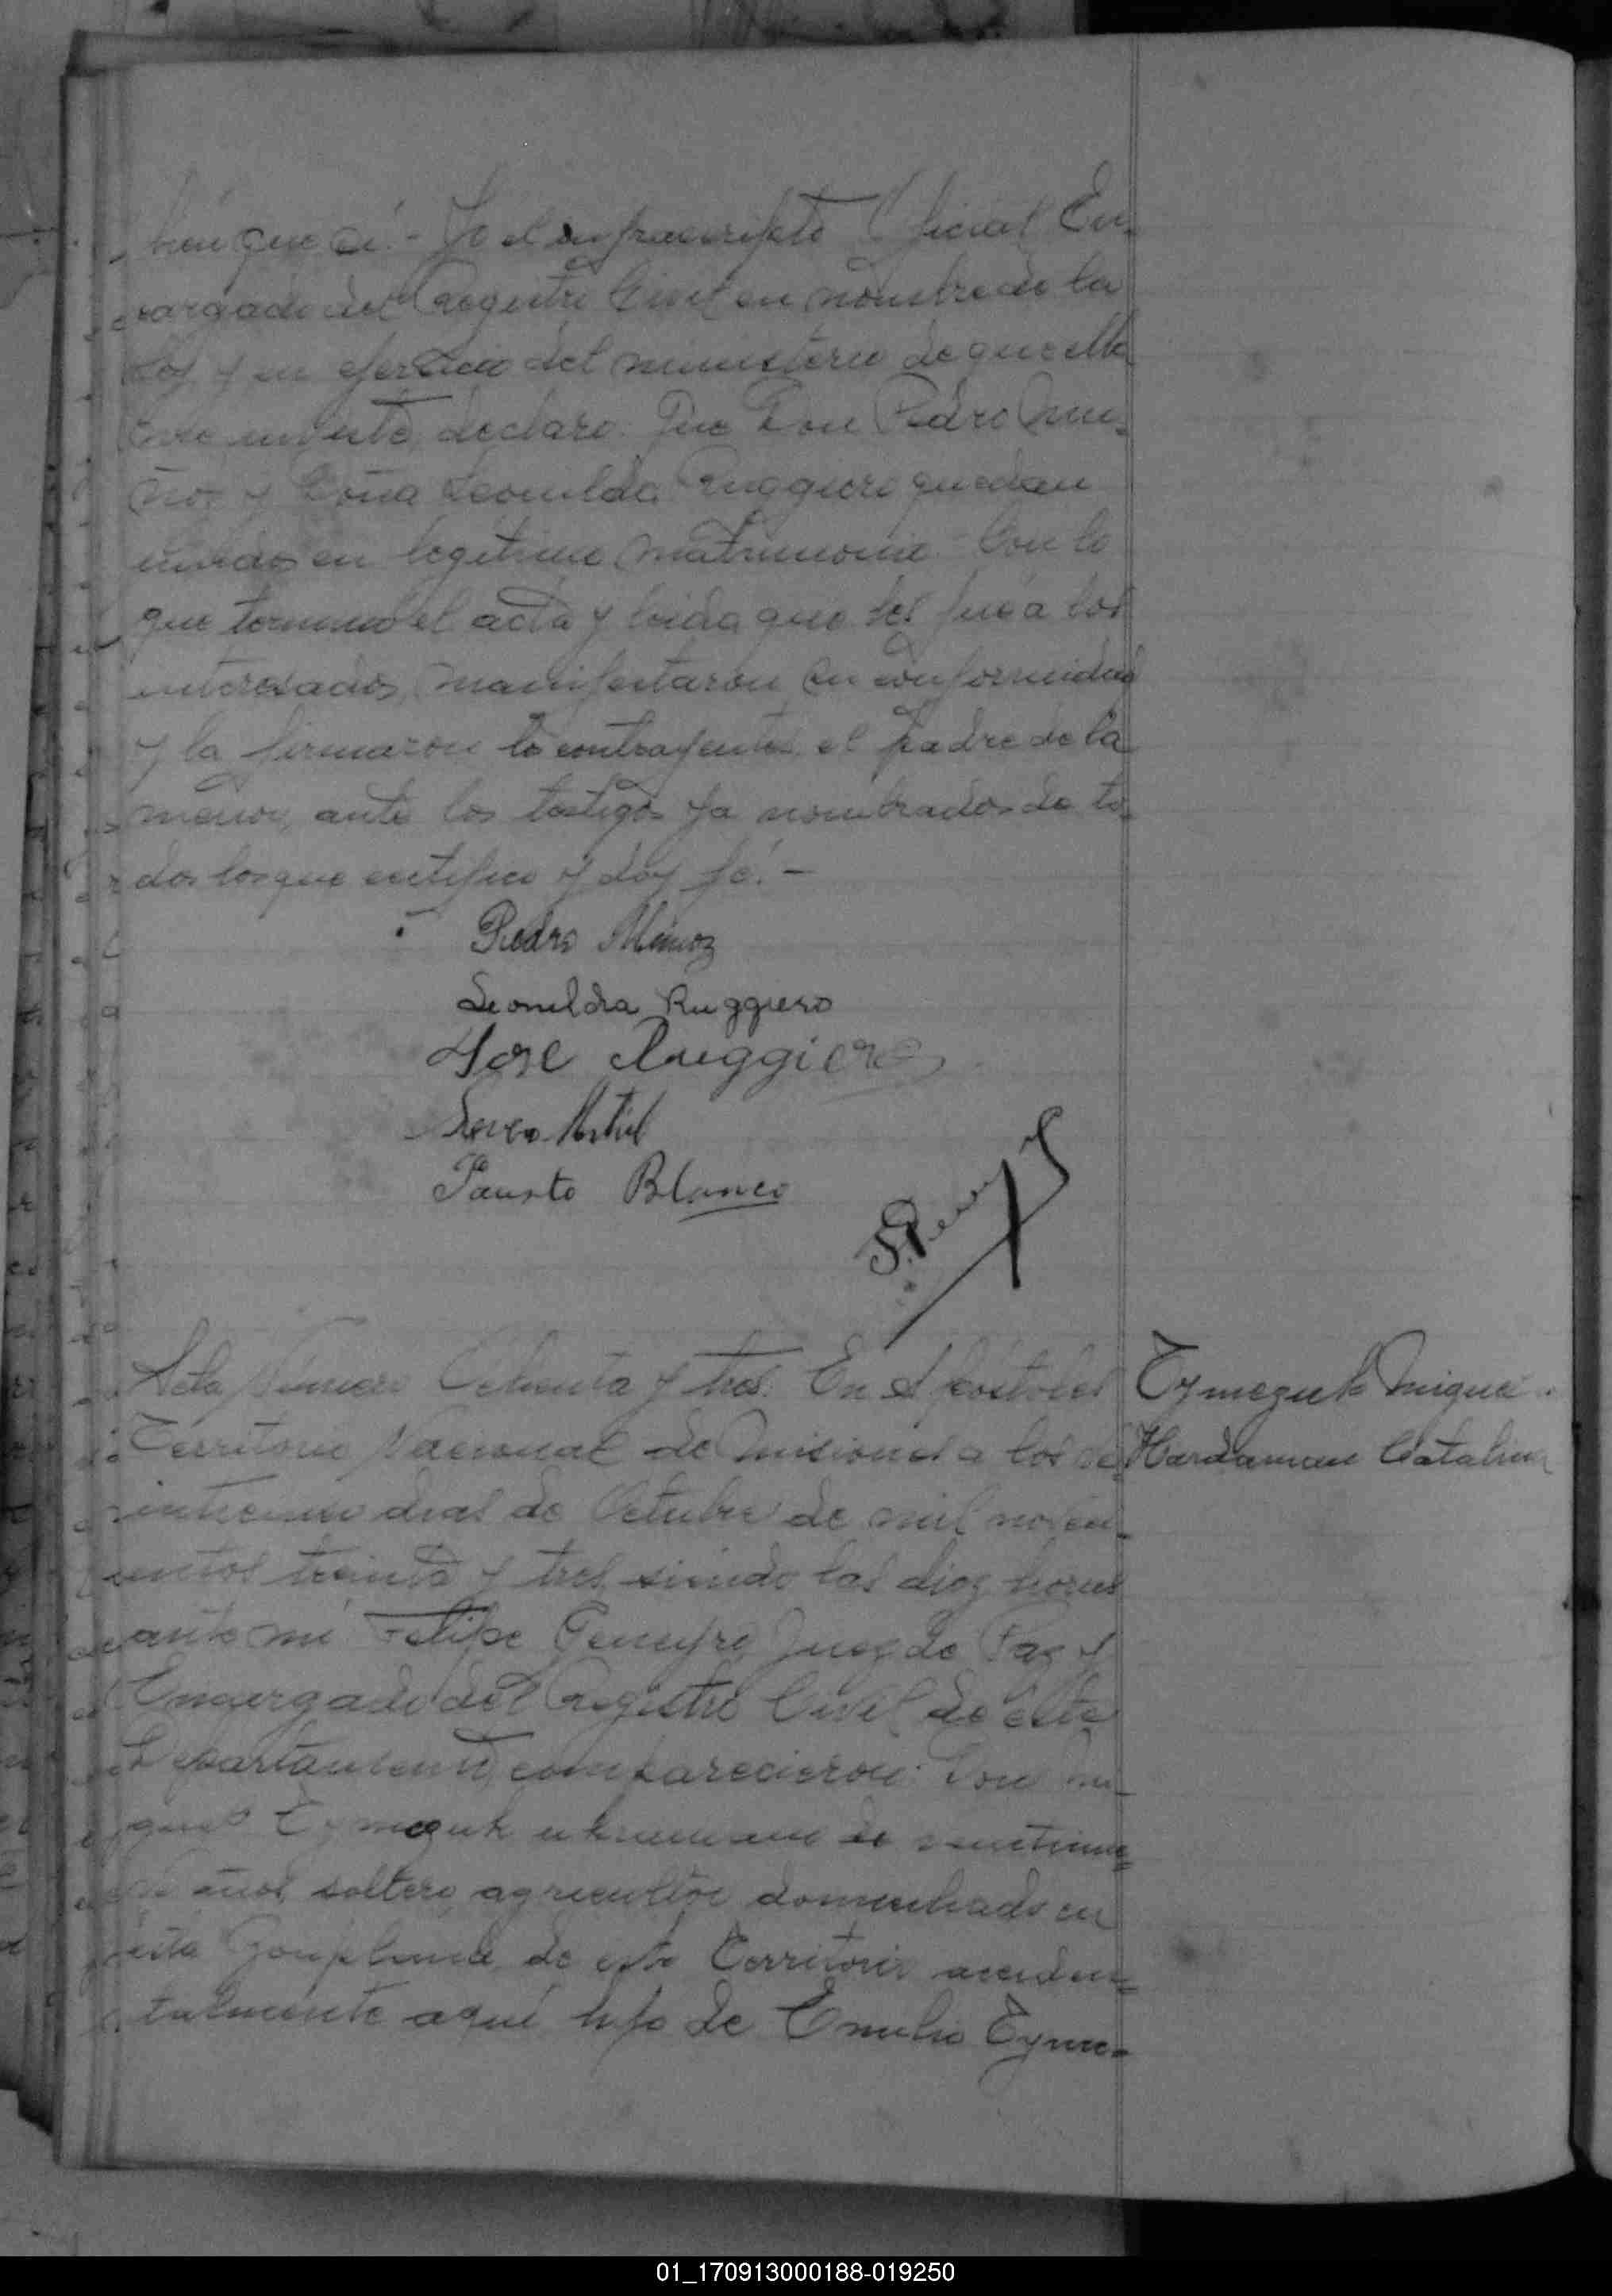 bién que sí.- Yo el infraescripto Oficial En-
cargado del Registro Civil en nombre de la
Ley y en ejercicio del ministerio de que ella
me inviste, declaro: Que Don Pedro Mu-
ñoz y Doña Leonilda Ruggiero quedan
unidos en legítimo matrimonio. Con lo
que terminó el acta y leida que les fué a los
interesados, manifestaron su conformidad
y la firmaron lo contrayentes, el padre de la
menor, ante los testigos ya nombrados de to-
dos los que certifico y doy fé.-
Pedro Muñoz
Leonilda Ruggiero
Jose Ruggiero
Fausto Blanco
Acta Número Ochenta y tres. En Apóstoles
Tymczuk Miguel
Territorio Nacional de Misiones a los
Hardaman Catalina
dias de Octubre de mil noven-
cientos treinta y tres, siendo las diez horas
ante mi Felipe Juez de Paz y
Encargado del Registro Civil de este
Departamento, comparecieron: Don Mi-
guel Tymczuk ukraniano de
años, soltero, agricultor domiciliado en
de este Territorio acciden-
talmente aquí hijo de Emilio Tymc-
01_170913000188-019250